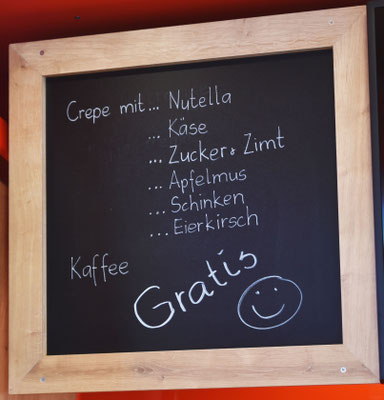 Crepe mit... Nutella
... Käse
... Zucker & Zimt
... Apfelmus
... Schinken
... Eierkirsch
Kaffee
Gratis